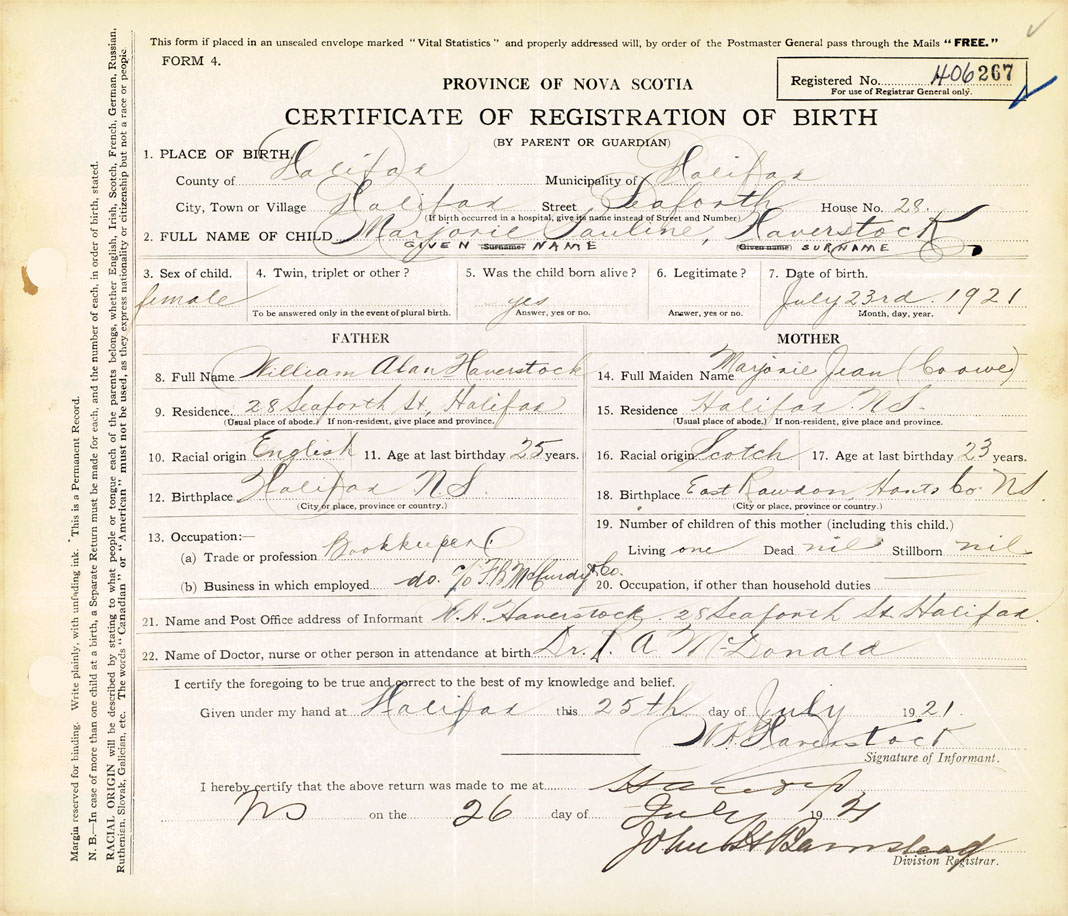 This form if placed in an unsealed envelope marked "Vital Statistics" and properly addressed will, by order of the Postmaster General pass through the Mails "FREE."
FORM 4.
Registered No. 406267
For use of Registrar General only.
PROVINCE OF NOVA SCOTIA
CERTIFICATE OF REGISTRATION OF BIRTH
(BY PARENT OR GUARDIAN)
1. PLACE OF BIRTH
County of Halifax Municipality of Halifax
City, Town or Village Halifax Street Seaforth House No. 28.
(If birth occurred in a hospital, give its name instead of Street and Number)
2. FULL NAME OF CHILD Marjorie Pauline, Haverstock
GIVEN Surname NAME (Given name) SURNAME
3. Sex of child. 4. Twin, triplet or other? 5. Was the child born alive? 6. Legitimate? 7. Date of birth.
female yes July 23rd. 1921
To be answered only in the event of plural birth. Answer, yes or no. Answer, yes or no. Month, day, year.
FATHER MOTHER
8. Full Name William Alan Haverstock 14. Full Maiden Name Marjorie Jean
9. Residence 28 Seaforth St, Halifax 15. Residence Halifax N.S.
(Usual place of abode.) If non-resident, give place and province. (Usual place of abode.) If non-resident, give place and province.
10. Racial origin English 11. Age at last birthday 25 years. 16. Racial origin Scotch 17. Age at last birthday 23 years.
12. Birthplace Halifax N.S. 18. Birthplace East Rawdon Hants Co NS.
(City or place, province or country.) (City or place, province or country.)
13. Occupation:— 19. Number of children of this mother (including this child.)
(a) Trade or profession Bookkeeper Living one Dead nil Stillborn nil
(b) Business in which employed do. c/o F.B McCurdy & Co. 20. Occupation, if other than household duties
21. Name and Post Office address of Informant W.A. Haverstock. 28 Seaforth St. Halifax.
22. Name of Doctor, nurse or other person in attendance at birth Dr. A McDonald
I certify the foregoing to be true and correct to the best of my knowledge and belief.
Given under my hand at Halifax this 25th day of July 1921.
W.A. Haverstock
Signature of Informant.
I hereby certify that the above return was made to me at
NS on the 26 day of July 1921
John Barnstead
Division Registrar.
Margin reserved for binding. Write plainly, with unfading ink. This is a Permanent Record.
N. B.—In case of more than one child at a birth, a Separate Return must be made for each, and the number of each, in order of birth, stated.
RACIAL ORIGIN will be described by stating to what people or tongue each of the parents belongs, whether English, Irish, Scotch, French, German, Russian,
Ruthenian, Slovak, Galician, etc. The words "Canadian" or "American" must not be used, as they express nationality or citizenship but not a race or people